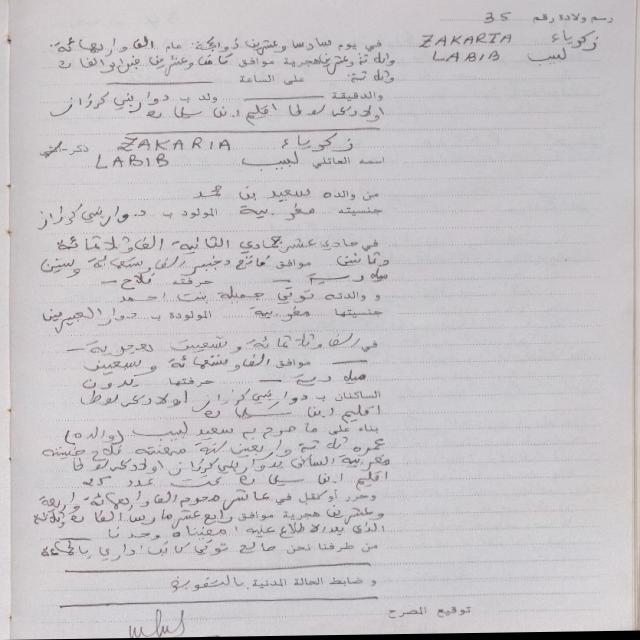 رسم ولادة رقم 35
زكرياء ZAKARIA
لبيب LABIB
في يوم سادس وعشرين ذو الحجة عام الف واربعمائة
وثلاثة وعشرين هجرية موافق ثامن وعشرين فبراير الفان
وثلاثة على الساعة
والدقيقة ولد ب دوار بني كرزاز
اولاد
زكرياء ZAKARIA ذكر
اسمه العائلي لبيب LABIB
من والده سعيد بن محمد
جنسيته مغربية المولود ب دوار بني كرزاز
في حادي عشر جمادى الثانية الف وثلاثمائة
وثمانين موافق فاتح دجنبر الف وتسعمائة وستين
ميلادية حرفته فلاح
و والدته توتي جميلة بنت احمد
جنسيتها مغربية المولودة ب دوار
في الف وثلاثمائة وتسعين هجرية
موافق الف وتسعمائة وسبعين
ميلادية حرفتها بدون
الساكنان ب دوار بني كرزاز اولاد
اقليم
بناء على ما صرح به سعيد لبيب (والده)
عمره ثلاثة واربعين سنة مهنته فلاح جنسيته
مغربية الساكن بدوار بني كرزاز اولاد
اقليم تحت عدد 25
وحرر في عاشر محرم الف واربعمائة واربعة
وعشرين هجرية موافق رابع عشر مارس الفان وثلاثة
الذي بعد الاطلاع عليه امضيناه وحدنا
من طرفنا نحن صالح توتي كاتب اداري
و ضابط الحالة المدنية بالتفويض
توقيع المصرح